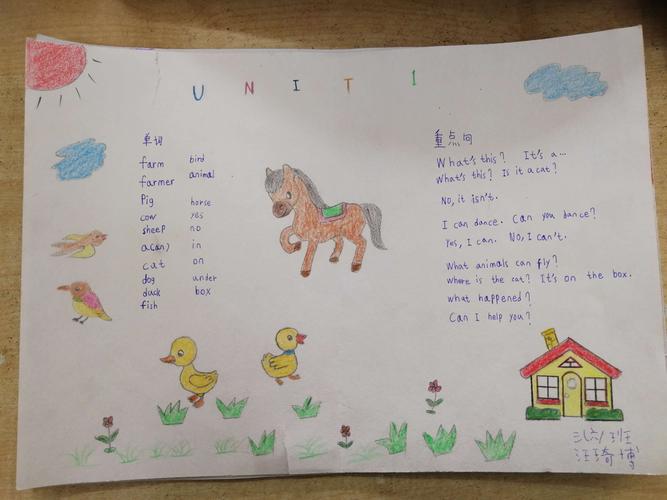 UNIT 1
单词
farm bird
farmer animal
Pig horse
cow yes
sheep no
a(an) in
cat on
dog under
duck box
fish
重点句
What's this? It's a...
What's this? Is it a cat?
No, it isn't.
I can dance. Can you dance?
Yes, I can. No, I can't.
What animals can fly?
where is the cat? It's on the box.
what happened?
Can I help you?
三(六)班
汪琦博